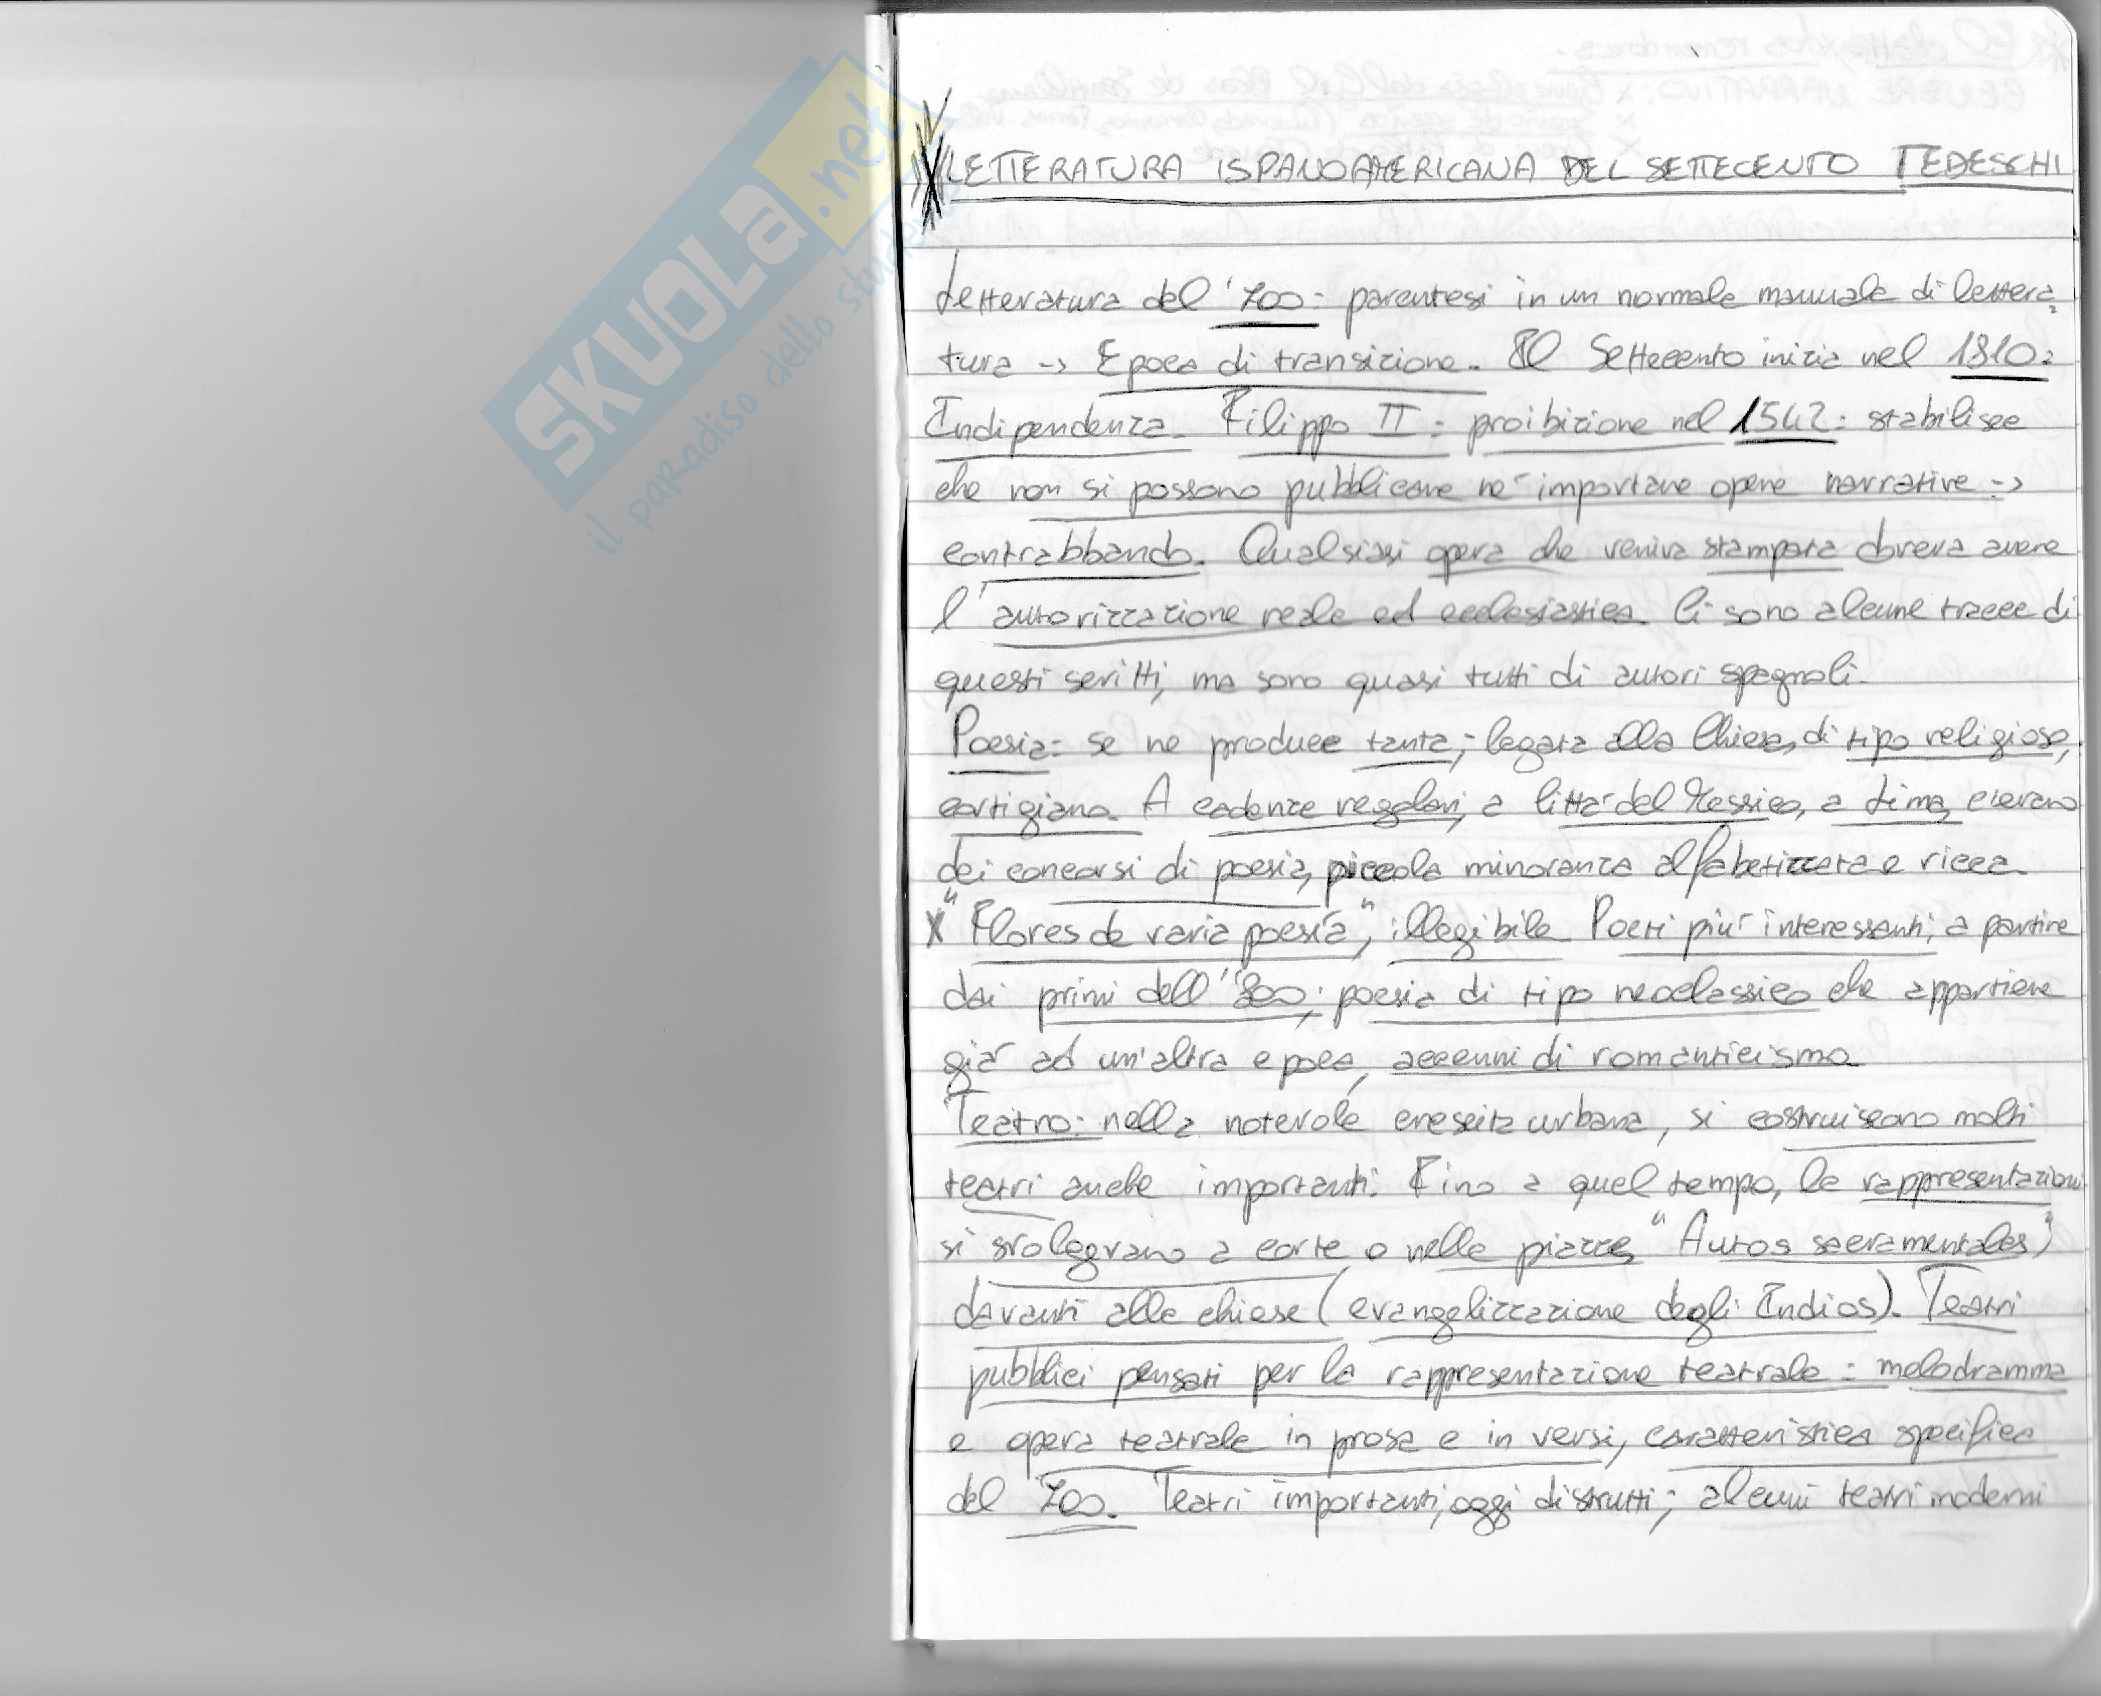 SKUOLA.net
il paradiso dello
LETTERATURA ISPANOAMERICANA DEL SETTECENTO TEDESCHI
Letteratura del '700: parentesi in un normale manuale di lettera
tura -> Epoca di transizione. Il Settecento inizia nel 1810:
Indipendenza. Filippo II: proibizione nel 1542: stabilisce
che non si possono pubblicare né importare opere narrative ->
contrabbando. Qualsiasi opera che veniva stampata doveva avere
l'autorizzazione reale ed ecclesiastica. Ci sono alcune tracce di
questi scritti, ma sono quasi tutti di autori spagnoli.
Poesia: se ne produce tanta; legata alla Chiesa, di tipo religioso,
cortigiano. A cadenze regolari, a Città del Messico, a Lima, c'erano
dei concorsi di poesia, piccola minoranza alfabetizzata e ricca.
X "Flores de varia poesía", illegibile Poeti più interessanti, a partire
dai primi dell'800: poesia di tipo neoclassico che appartiene
già ad un'altra epoca, accenni di romanticismo
Teatro: nella notevole crescita urbana, si costruiscono molti
teatri anche importanti. Fino a quel tempo, le rappresentazioni
si svolgevano a corte o nelle piazze "Autos sacramentales"
davanti alle chiese (evangelizzazione degli Indios). Teatri
pubblici pensati per la rappresentazione teatrale: melodramma
e opera teatrale in prosa e in versi, caratteristica specifica
del 700. Teatri importanti, oggi distrutti; alcuni teatri moderni